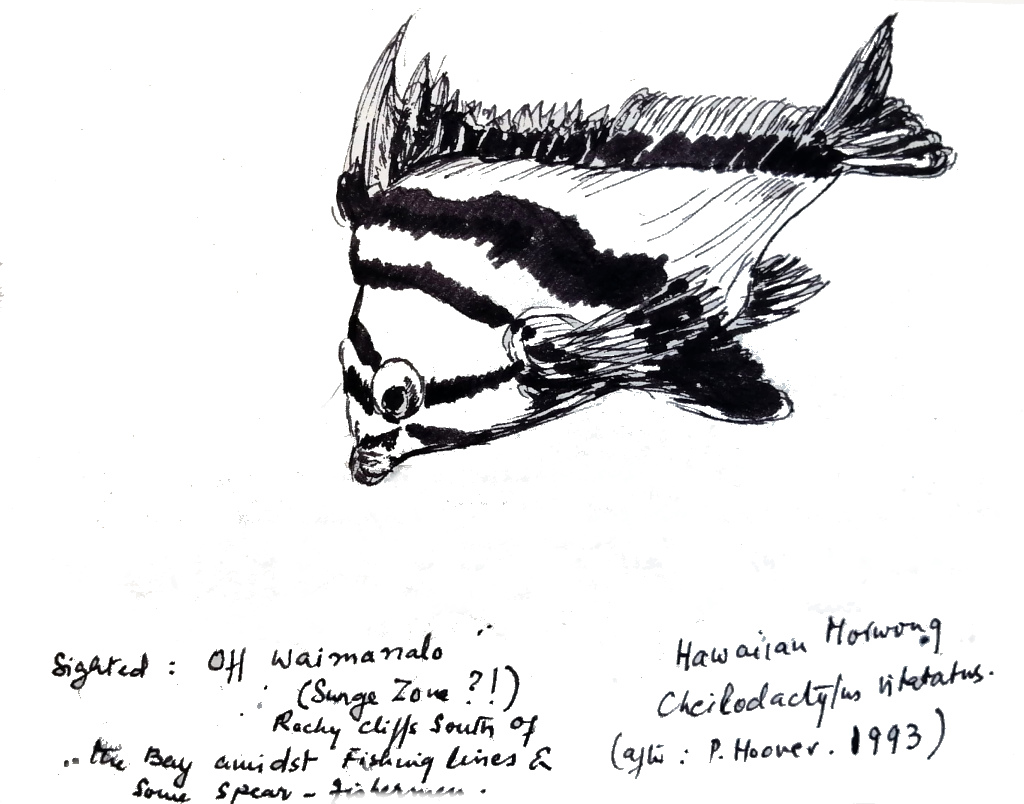 Sighted : Off Waimanalo
(Surge Zone ?!)
Rocky cliffs South of
the Bay amidst Fishing lines &
Some Spear - fishermen .
Hawaiian Morwong
Cheilodactylus vitatatus.
(after : P. Hoover. 1993)